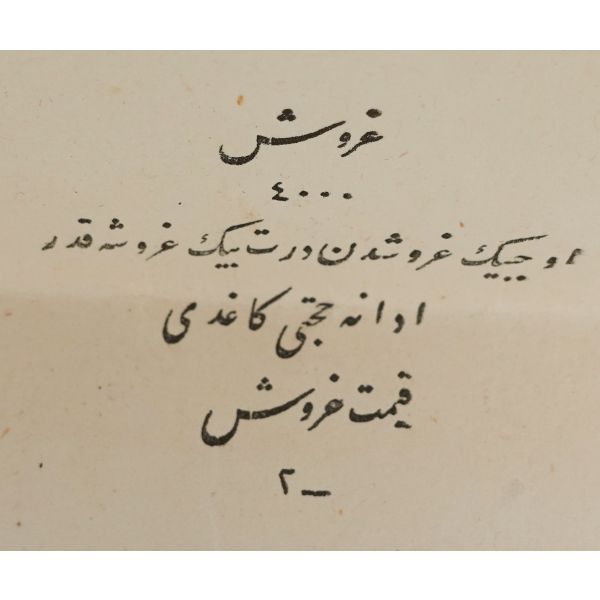 غروش
٤٠٠٠
اوچبیك غروشدن درت بیك غروشه قدر
ادانه حجتی كاغدی
قیمت غروش
٢ –